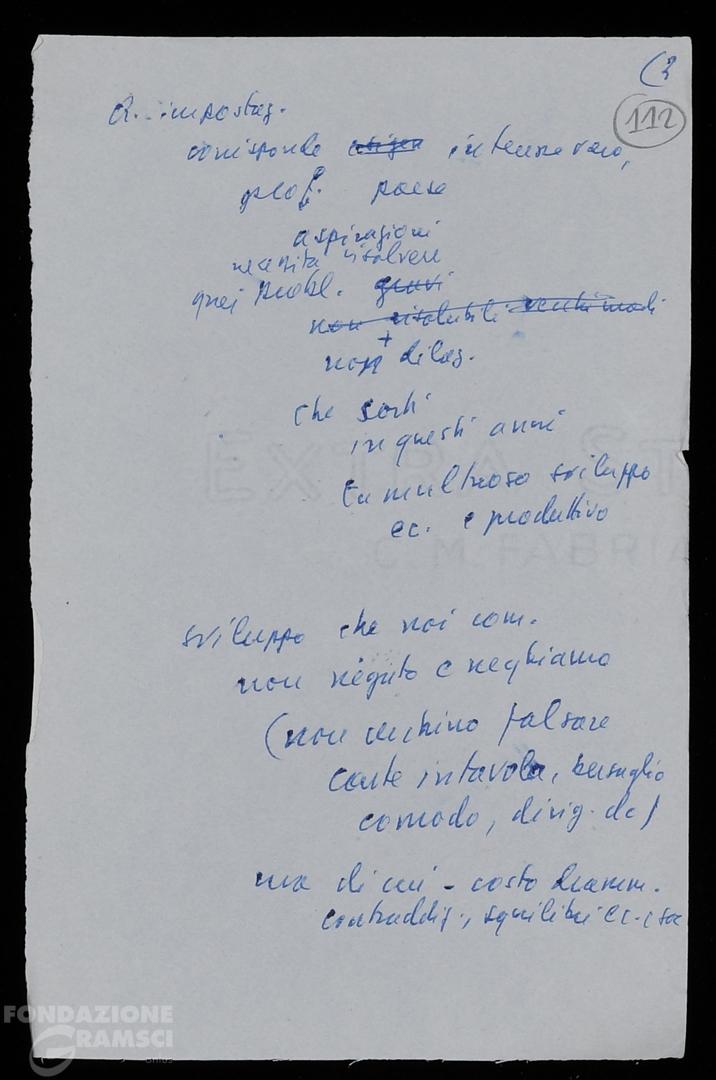 (2
112
Q. impostaz.
corrisponde esigen interesse vero,
prof. paese
aspirazioni
necessità risolvere
quei probl. gravi
non risolubili vecchi modi
+
non dilaz.
che sorti
in questi anni
tumultuoso sviluppo
ec. e produttivo
EXTRA ST
C.M. FABRIA
sviluppo che noi com.
non negato e neghiamo
(non cerchino falsare
carte in tavola, bersaglio
comodo, dirig. dc)
ma di cui - costo dramm.
contraddiz., squilibri ec. e soc
FONDAZIONE
GRAMSCI
onlus